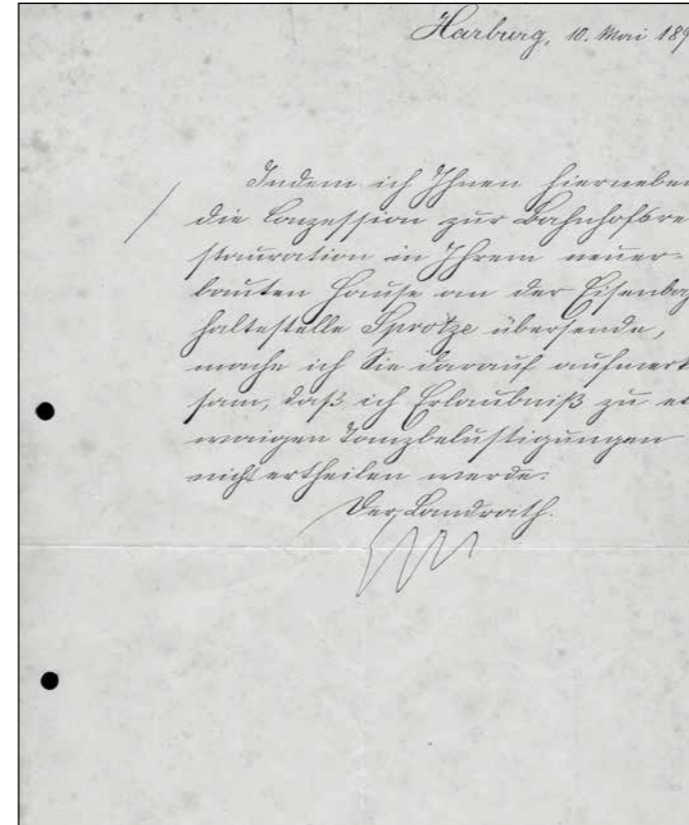 Harburg, 10. Mai 189
Indem ich Ihnen hierneben
die Conzession zur Bahnhofsre-
stauration in Ihrem neuer-
bauten Hause an der Eisenbah
haltestelle Sprötze übersende,
mache ich Sie darauf aufmerk
sam, daß ich Erlaubniß zu et
waigen Tanzbelustigungen
nicht ertheilen werde.
Der Landrath.